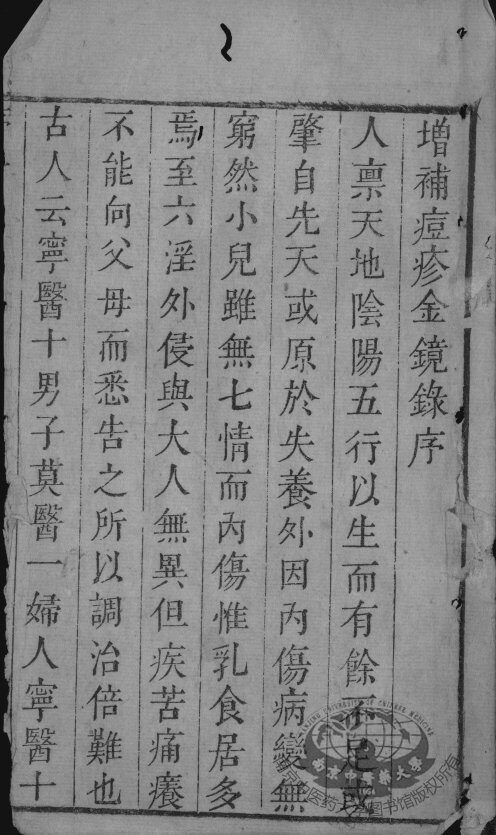 增補痘疹金鏡錄序
人禀天地陰陽五行以生而有餘不足或
肇自先天或原於失養外因內傷病變無
窮然小兒雖無七情而內傷惟乳食居多
焉至六淫外侵與大人無異但疾苦痛癢
不能向父母而悉告之所以調治倍難也
古人云寧醫十男子莫醫一婦人寧醫十